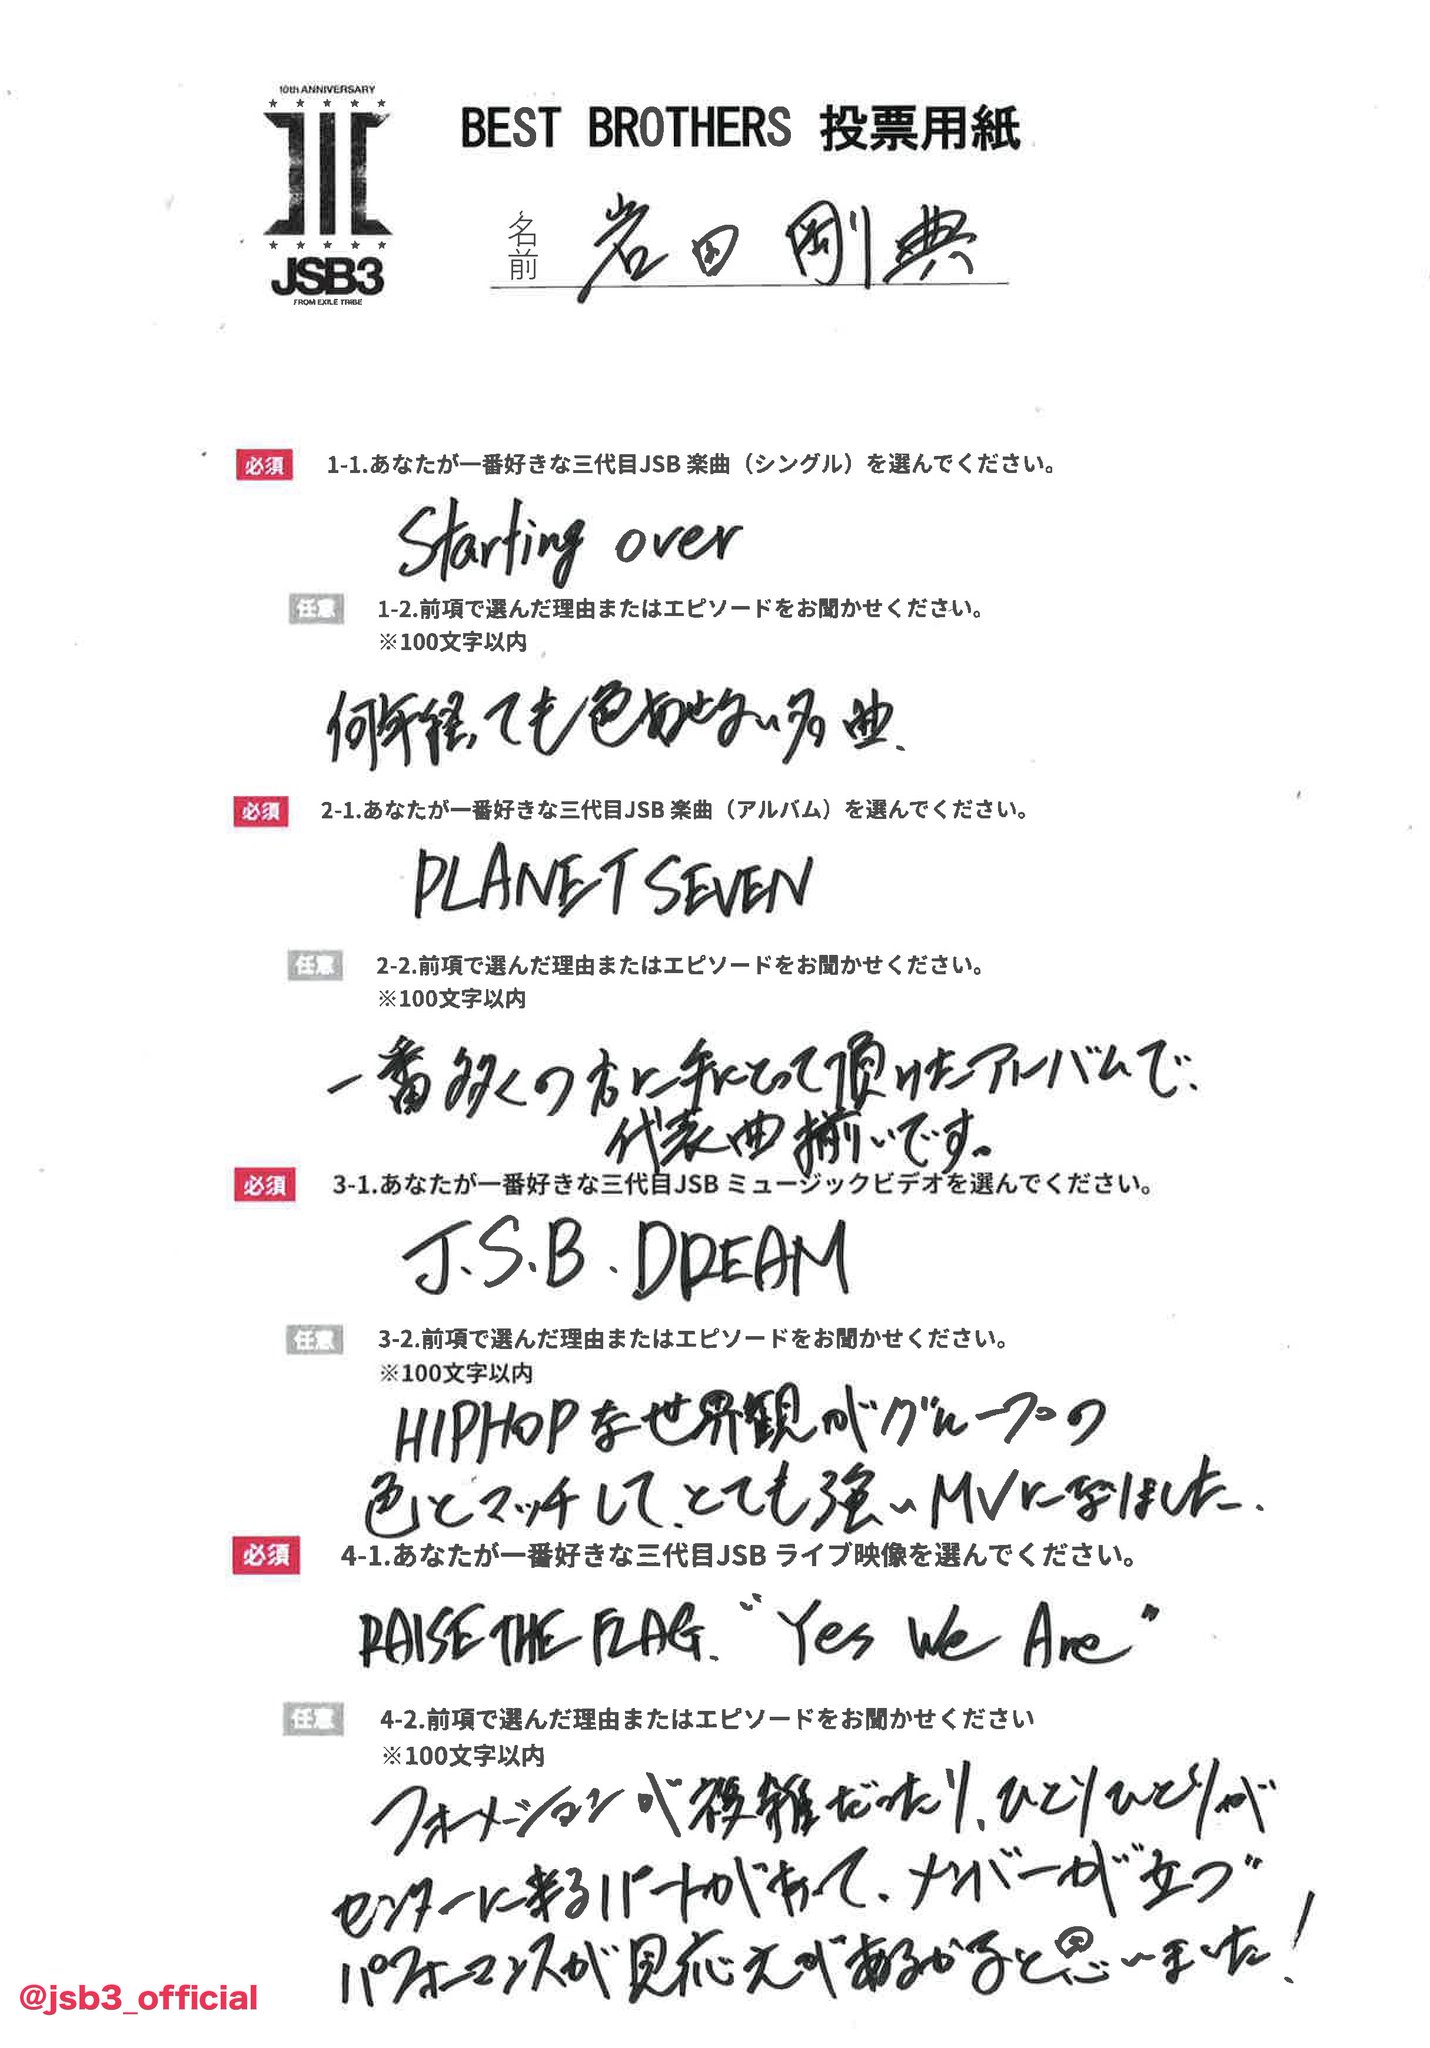 10th ANNIVERSARY
JSB3
FROM EXILE TRIBE
BEST BROTHERS 投票用紙
名前 岩田 剛典
必須 1-1.あなたが一番好きな三代目JSB 楽曲（シングル）を選んでください。
Starting over
任意 1-2.前項で選んだ理由またはエピソードをお聞かせください。
※100文字以内
何年経っても色あせない名曲、
必須 2-1.あなたが一番好きな三代目JSB 楽曲（アルバム）を選んでください。
PLANET SEVEN
任意 2-2.前項で選んだ理由またはエピソードをお聞かせください。
※100文字以内
一番多くの方に手にとって頂けたアルバムで、
代表曲揃いです。
必須 3-1.あなたが一番好きな三代目JSB ミュージックビデオを選んでください。
J.S.B. DREAM
任意 3-2.前項で選んだ理由またはエピソードをお聞かせください。
※100文字以内
HIPHOPな世界観がグループの
色とマッチして、とても強いMVになりました、
必須 4-1.あなたが一番好きな三代目JSB ライブ映像を選んでください。
RAISE THE FLAG、"Yes We Are"
任意 4-2.前項で選んだ理由またはエピソードをお聞かせください
※100文字以内
フォーメーションが複雑だったり、ひとりひとりが
センターに来るパートがあって、メンバーが"立つ"
パフォーマンスが見応えがあるかなと思いました！
@jsb3_official